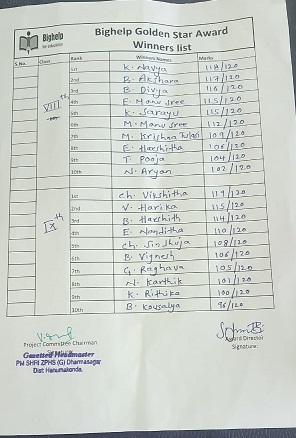 Bighelp
for education
Bighelp Golden Star Award
Winners list
S.No. Class Rank Winners Names Marks
1st K. Navya 118/120
2nd B. Akshara 117/120
3rd B. Divya 116/120
VIII th 4th E. Manu sree 115/120
5th K. Sarayu 115/120
6th M. Manu sree 112/120
7th M. Krishna Tulasi 109/120
8th E. Harshitha 106/120
9th T. Pooja 104/120
10th N. Aryan 102/120
1st Ch. Vikshitha 119/120
2nd V. Harika 115/120
3rd B. Harshith 114/120
IX th 4th E. Nanditha 110/120
5th Ch. Sindhuja 108/120
6th B. Vignesh 106/120
7th G. Raghava 105/120
8th N. Karthik 101/120
9th K. Rithika 100/120
10th B. Kousalya 96/120
Project Committee Chairman
Signature:
Gazetted Headmaster
PM SHRI ZPHS (G) Dharmasagar
Dist: Hanumakonda.
Award Director
Signature: